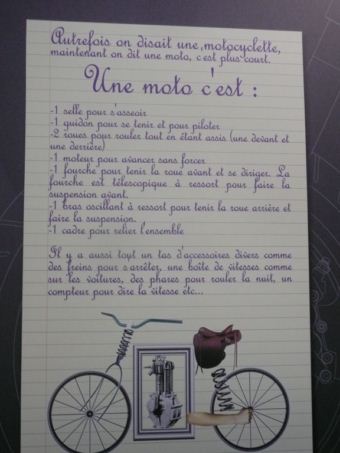 Autrefois on disait une motocyclette,
maintenant on dit une moto, c'est plus court.
Une moto c'est :
-1 selle pour s'asseoir
-1 guidon pour se tenir et pour piloter
-2 roues pour rouler tout en étant assis (une devant et
une derrière)
-1 moteur pour avancer sans forcer
-1 fourche pour tenir la roue avant et se diriger. La
fourche est télescopique à ressort pour faire la
suspension avant.
-1 bras oscillant à ressort pour tenir la roue arrière et
faire la suspension.
-1 cadre pour relier l'ensemble
Il y a aussi tout un tas d'accessoires divers comme
des freins pour s'arrêter, une boîte de vitesses comme
sur les voitures, des phares pour rouler la nuit, un
compteur pour dire la vitesse etc...